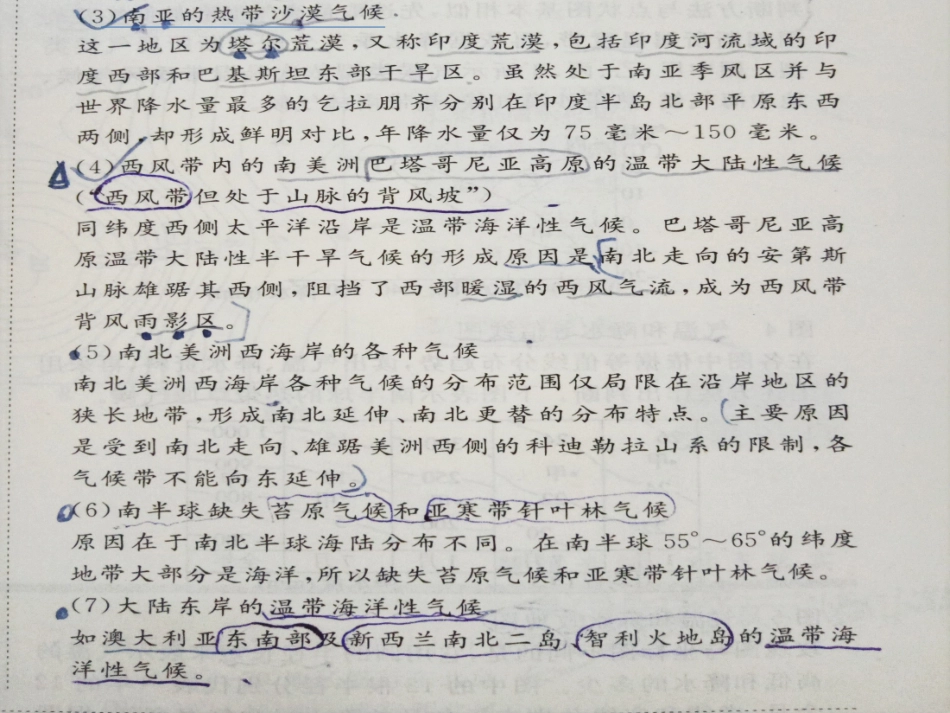 (3)南亚的热带沙漠气候.
这一地区为塔尔荒漠,又称印度荒漠,包括印度河流域的印
度西部和巴基斯坦东部干旱区。虽然处于南亚季风区并与
世界降水量最多的乞拉朋齐分别在印度半岛北部平原东西
两侧,却形成鲜明对比,年降水量仅为 75 毫米～150 毫米。
(4)西风带内的南美洲巴塔哥尼亚高原的温带大陆性气候
(“西风带但处于山脉的背风坡”)
同纬度西侧太平洋沿岸是温带海洋性气候。巴塔哥尼亚高
原温带大陆性半干旱气候的形成原因是南北走向的安第斯
山脉雄踞其西侧,阻挡了西部暖湿的西风气流,成为西风带
背风雨影区。
(5)南北美洲西海岸的各种气候
南北美洲西海岸各种气候的分布范围仅局限在沿岸地区的
狭长地带,形成南北延伸、南北更替的分布特点。主要原因
是受到南北走向、雄踞美洲西侧的科迪勒拉山系的限制,各
气候带不能向东延伸。
(6)南半球缺失苔原气候和亚寒带针叶林气候
原因在于南北半球海陆分布不同。在南半球 55°～65°的纬度
地带大部分是海洋,所以缺失苔原气候和亚寒带针叶林气候。
(7)大陆东岸的温带海洋性气候
如澳大利亚东南部及新西兰南北二岛,智利火地岛的温带海
洋性气候。